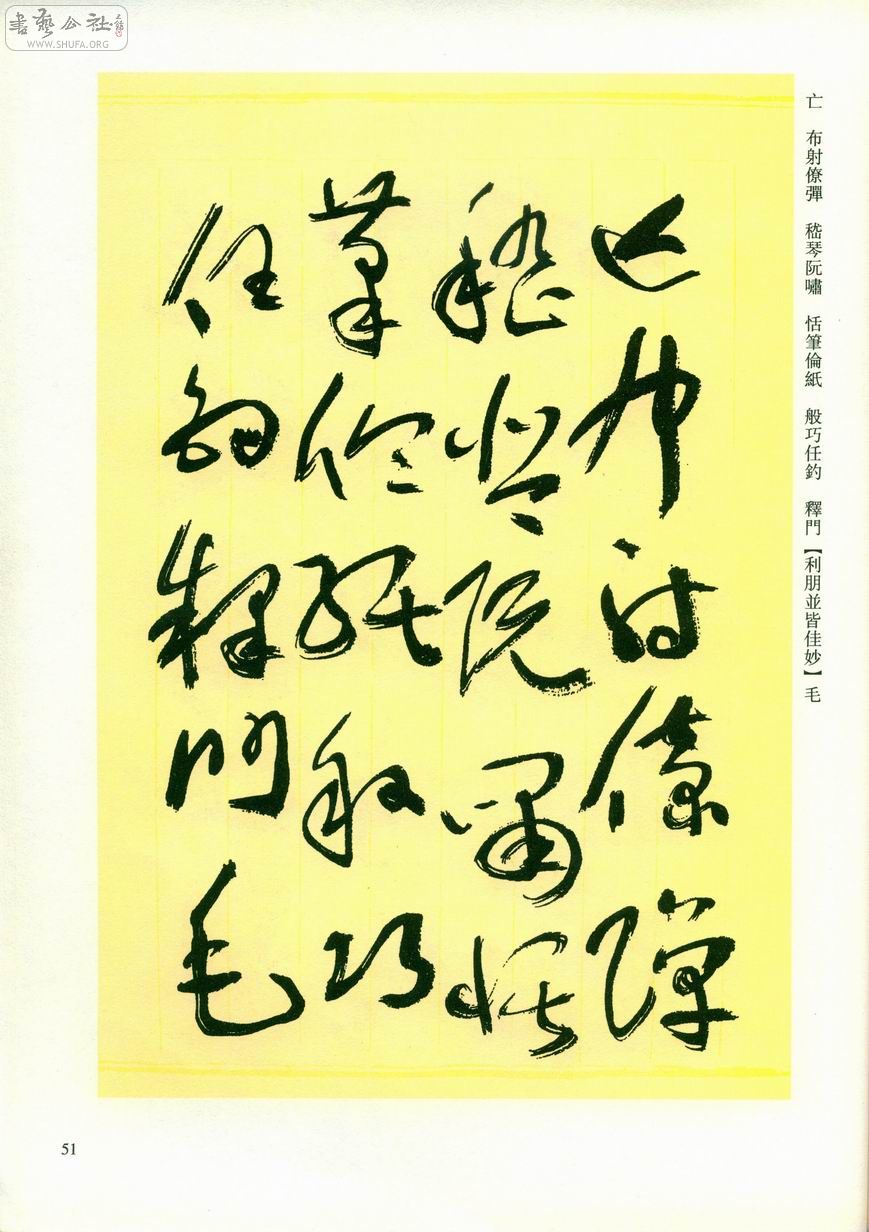 書藝公社
WWW.SHUFA.ORG
亡 布射僚彈 嵇琴阮嘯 恬筆倫紙 般巧任釣 釋門【利朋並皆佳妙】毛
亡布射僚彈
嵇琴阮嘯恬
筆倫紙般巧
任釣釋門毛
51